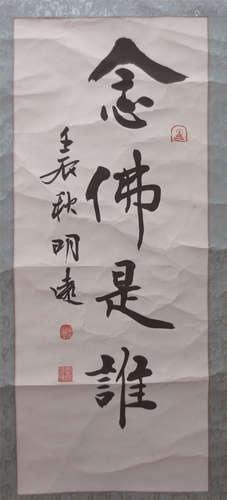 念佛是誰
壬辰秋明遠